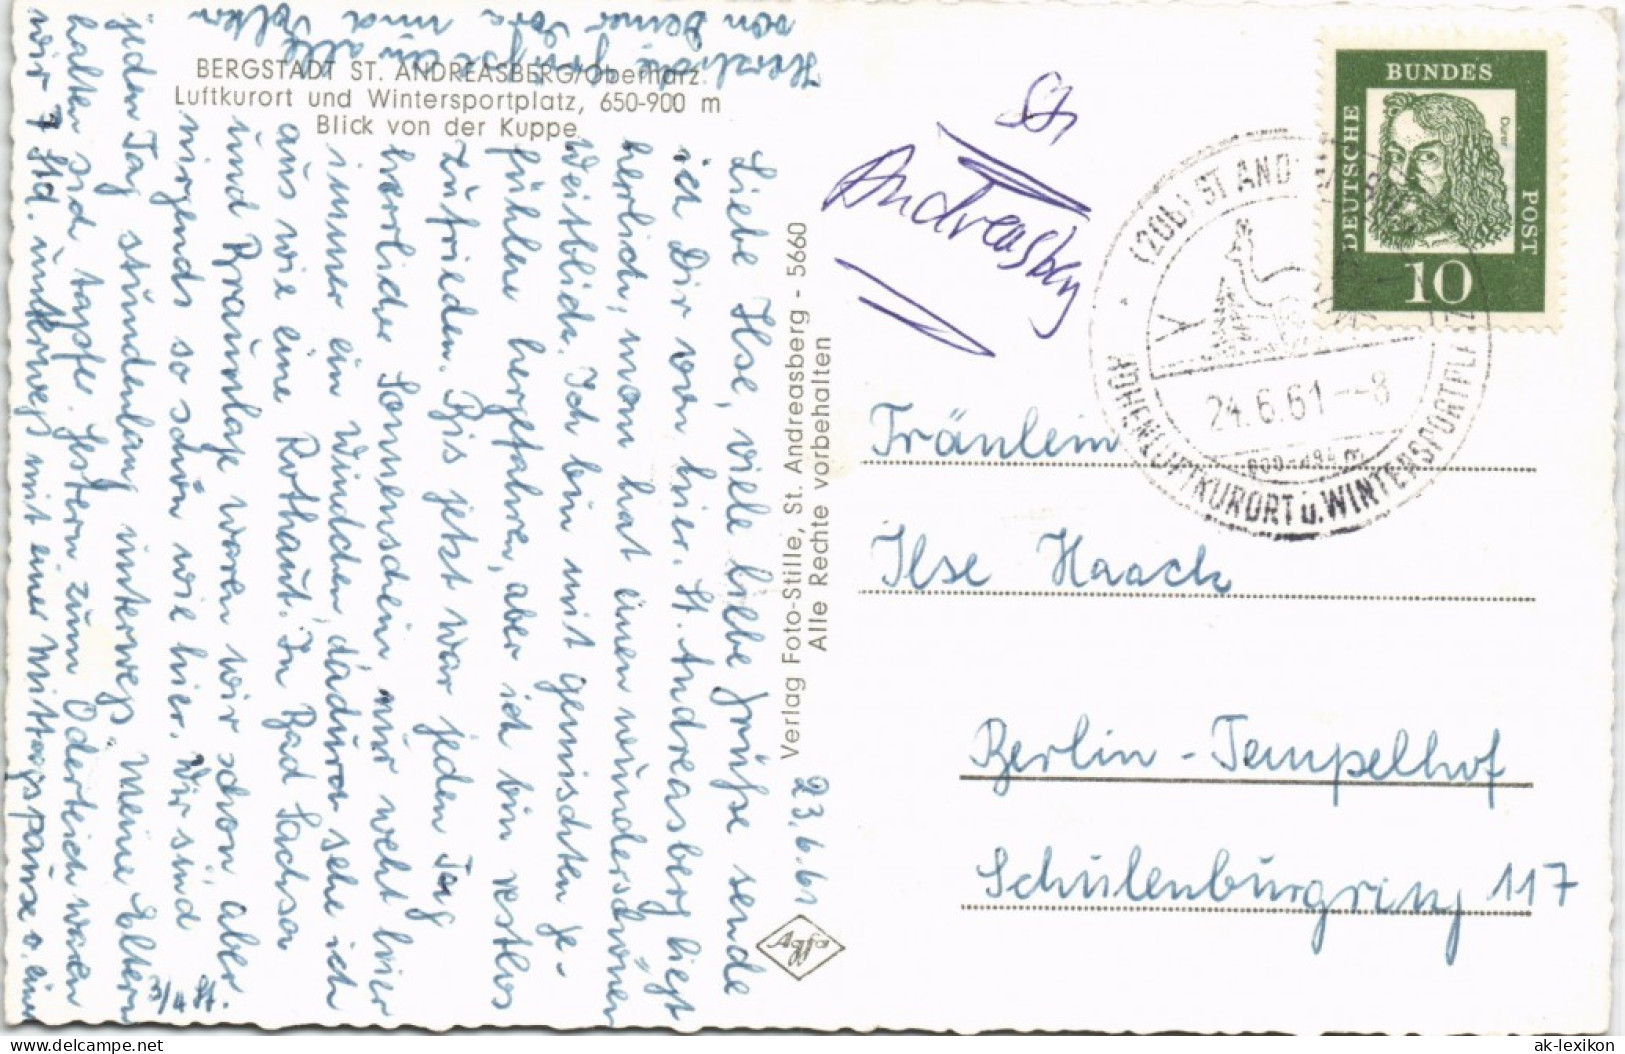 BERGSTADT ST. ANDREASBERG/Oberharz
Luftkurort und Wintersportplatz, 650-900 m
Blick von der Kuppe
23.6.61
Liebe Ilse, viele liebe Grüße sende
ich Dir von hier. St. Andreasberg liegt
herlich, man hat einen wunderschönen
Weitblick. Ich bin mit gemischten Ge-
fühlen hergefahren, aber ich bin restlos
zufrieden. Bis jetzt war jeden Tag
herrlicher Sonnenschein, nur weht hier
immer ein Windchen, dadurch sehe ich
aus wie eine Rothaut. In Bad Sachsa
und Braunlage waren wir schon, aber
nirgends so schön wie hier. Wir sind
jeden Tag stundenlang unterwegs. Meine Eltern
halten sich tapfer. Gestern zum Oderteich waren
wir 7 Std. unterwegs mit einer Mittagspause v. einer
3/4 St.
Herzliche Grüße an alle
von Deiner und
Verlag Foto-Stille, St. Andreasberg - 5660
Alle Rechte vorbehalten
Agfa
St.
Andreasberg
DEUTSCHE
BUNDES
POST
Dürer
10
(20b) ST. AND
24.6.61--8
HÖHENLUFTKURORT u. WINTERSPORTPL
Fräulein
Ilse Haack
Berlin - Tempelhof
Schulenburgring 117
ak-lexikon.com